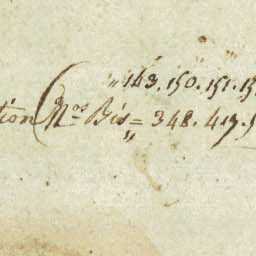 „ 143. 150. 151. 15
tion ( Nos Bis = 348. 417.
„